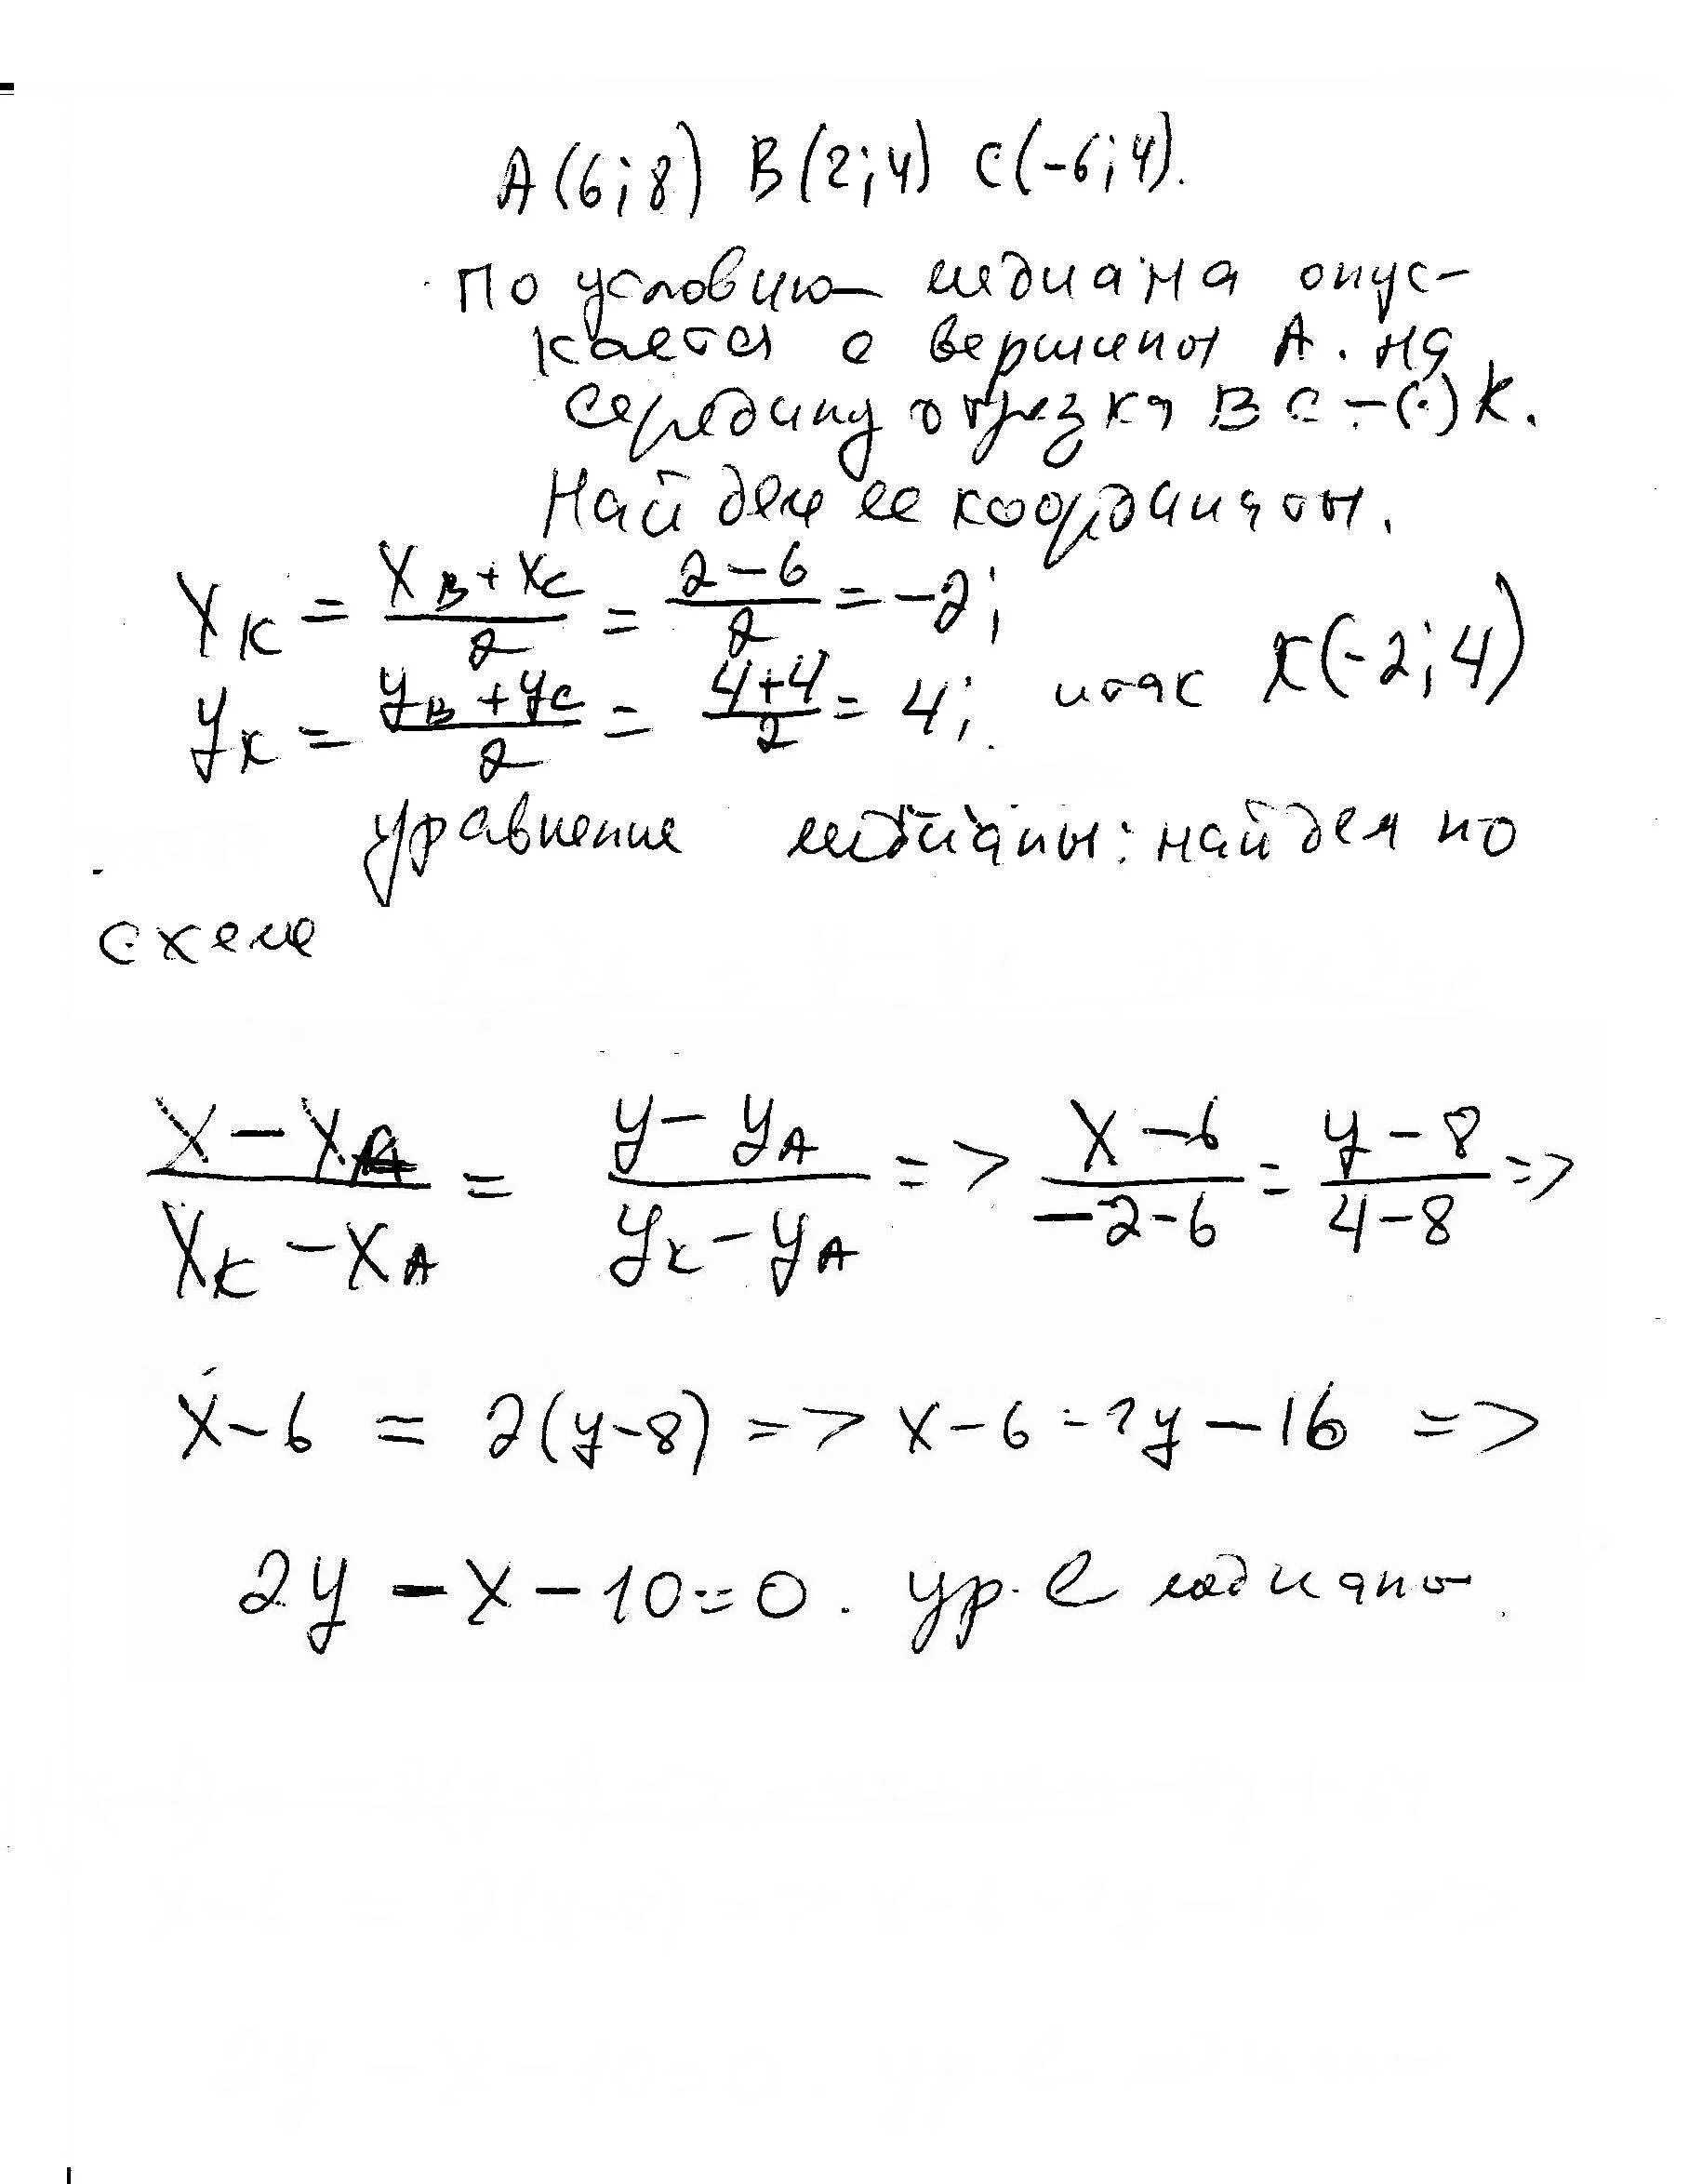 A(6;8) B(2;4) C(-6;4).
По условию медиана опус-
кается с вершины A. на
середину отрезка BC – (·) K.
Найдем ее координаты.
X_K = (X_B + X_C)/2 = (2-6)/2 = -2;
y_K = (y_B + y_C)/2 = (4+4)/2 = 4; итак K(-2;4)
уравнение медианы: найдем по
схеме
(X - X_A)/(X_K - X_A) = (y - y_A)/(y_K - y_A) => (X-6)/(-2-6) = (y-8)/(4-8) =>
X-6 = 2(y-8) => X-6 = 2y-16 =>
2y - X - 10 = 0. ур-е медианы